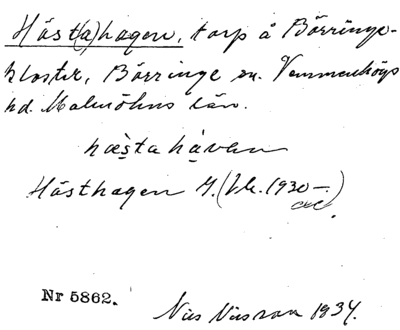 Häst(a)hagen, torp å Börringe-
kloster, Börringe sn. Vemmenhögs
hd. Malmöhus län.
hæstahaven
Hästhagen J. (Ek. 1930-)
Nr 5862.
Nils Nilsson 1934.